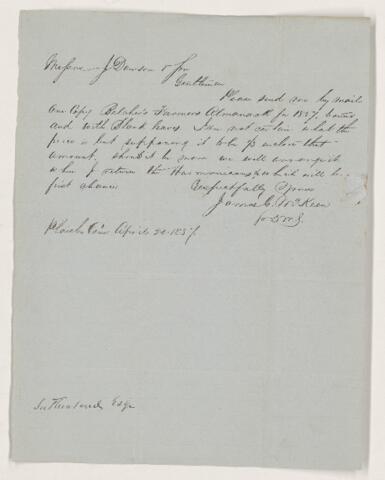 Messrs J. Dawson & Son
Gentlemen
Please send me by mail
One Copy Belcher's Farmers Almanack for 1857
and with Blank leaves. I am not certain what the
price is but supposing it to be enclose that
amount, should it be more we will arrange it
when I return the Harmonicans which will be
first chance
Respectfully Yours
James C. McKeen
April 20 1857
Esqr